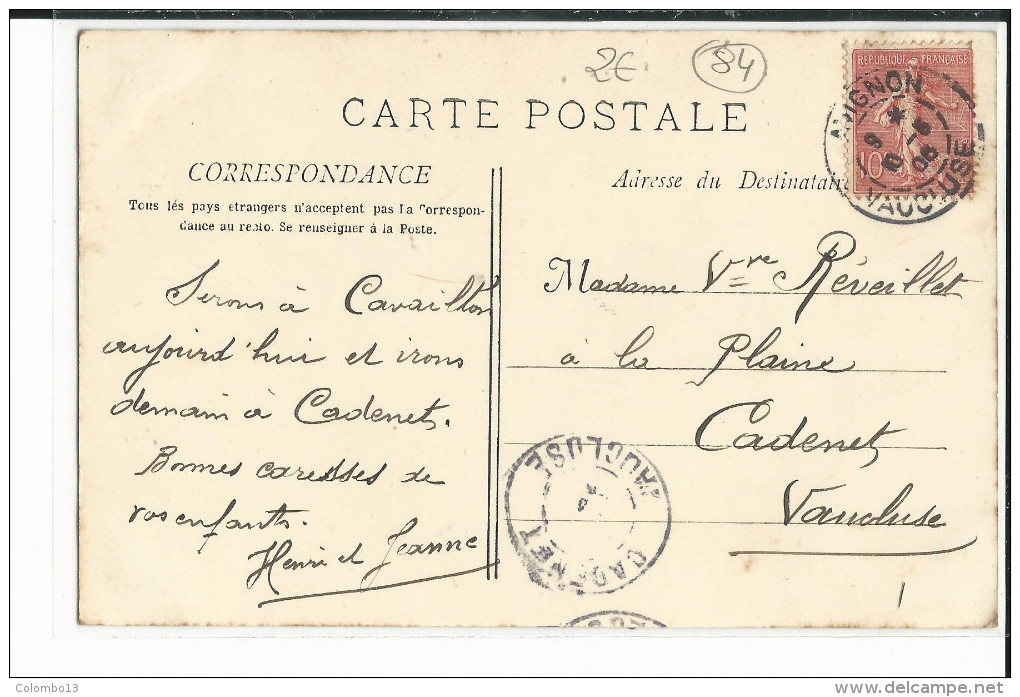 2€
84
REPUBLIQUE FRANÇAISE
10
AVIGNON
9
10 -5
06
VAUCLUSE
CARTE POSTALE
CORRESPONDANCE
Tous lés pays etrangers n'acceptent pas la Correspon-
dance au recto. Se renseigner à la Poste.
Adresse du Destinataire
Serons à Cavaillon
aujourd'hui et irons
demain à Cadenet.
Bonnes caresses de
vos enfants.
Henri et Jeanne
Madame Vve Réveillet
à la Plaine
Cadenet
Vaucluse
CADENET
VAUCLUSE
Colombo13
delcampe.net